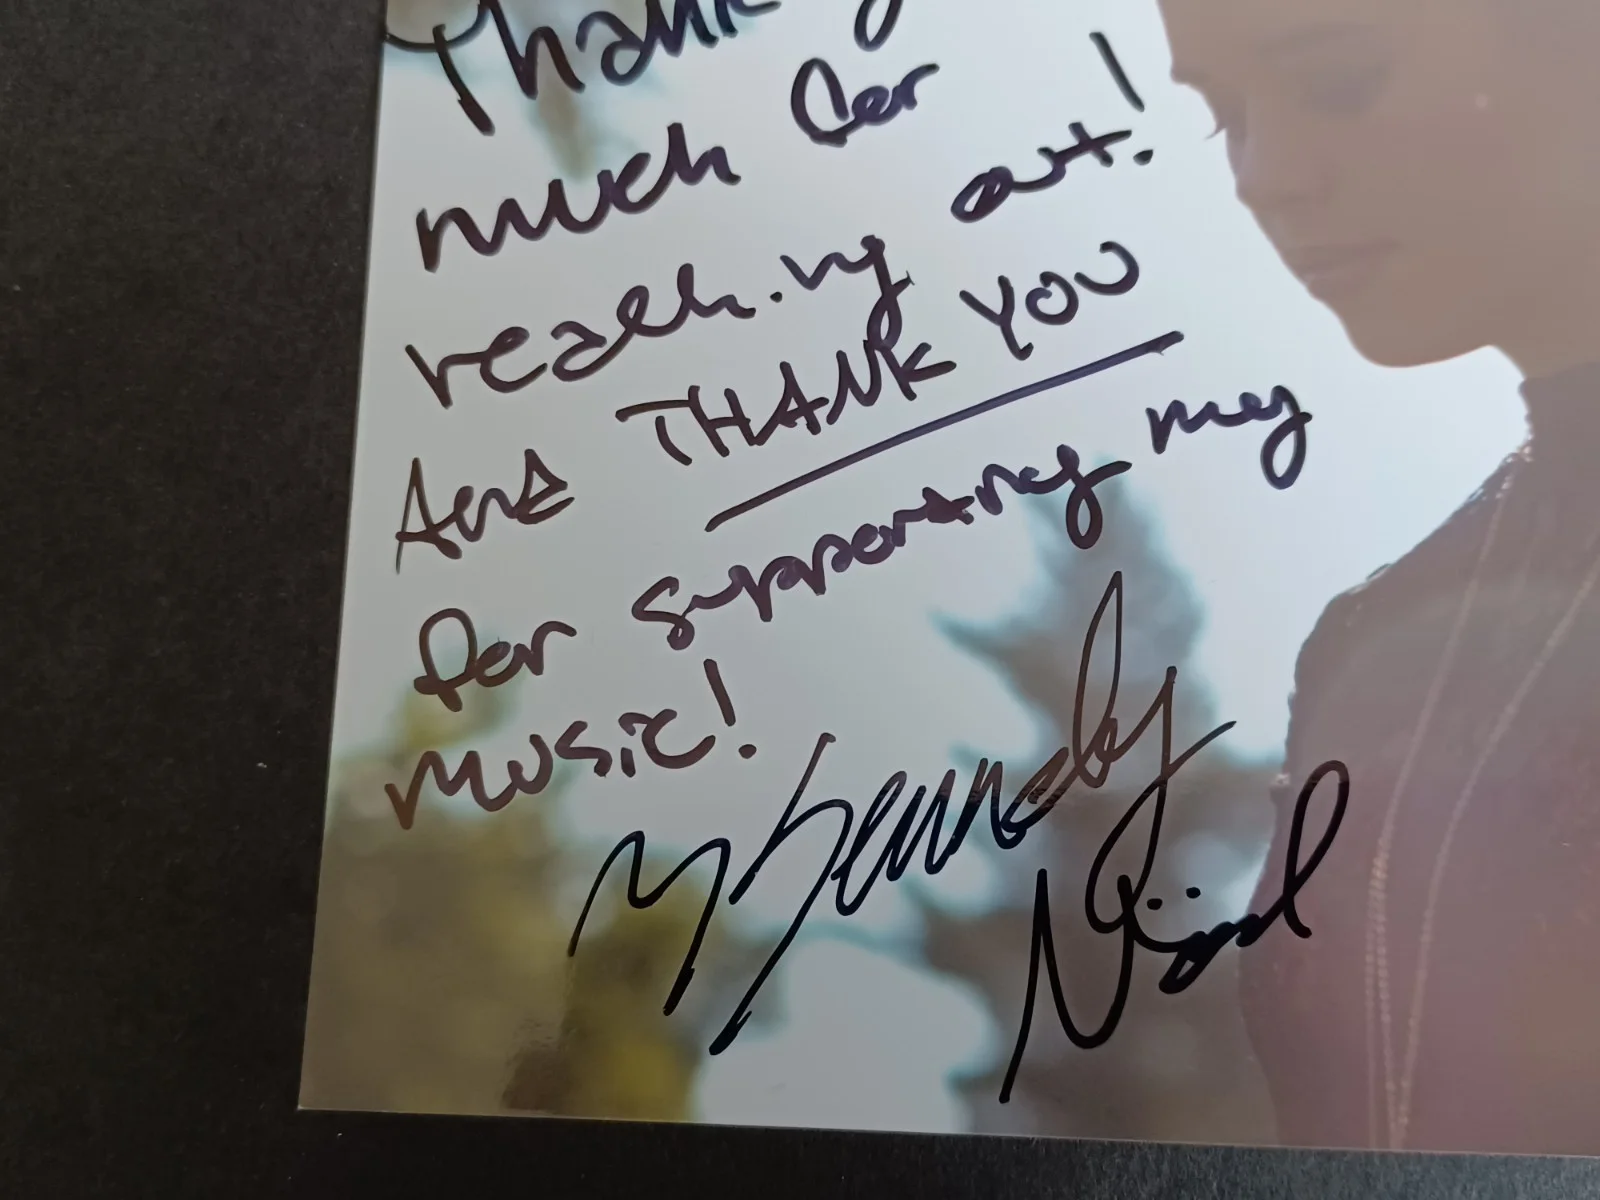 Thank y
much for
reaching out!
And THANK YOU
for supporting my
music!
Kennedy